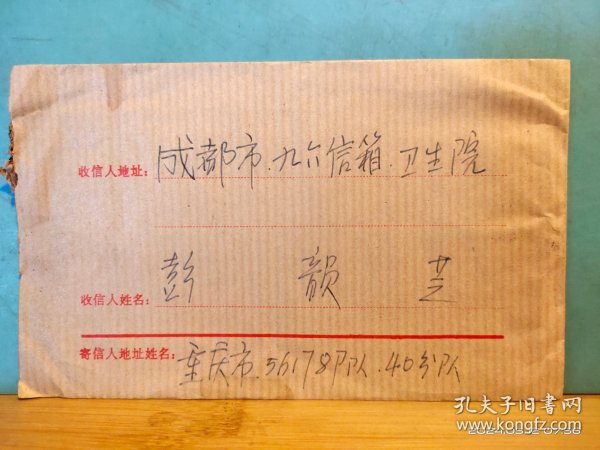 收信人地址: 成都市.九六信箱.卫生院
收信人姓名: 彭韻芝
寄信人地址姓名: 重庆市.56178部队.40分队
孔夫子旧书网
www.kongfz.com